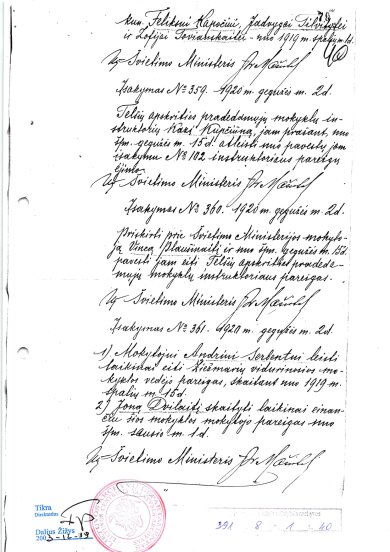 kun. Feliksui Kapočiui, Jadvygai
ir Zofijai Tovianskaitei - nuo 1919 m. spalių m. 1 d.
Už Švietimo Ministeris
Įsakymas № 359. 1920 m. gegužės m. 2 d.
Telšių apskrities pradedamųjų mokyklų in-
struktorių Kazį Kupčiūną, jam prašant, nuo
šm. gegužės m. 15 d. atleisti nuo pavestų jam
įsakymu № 102 instruktoriaus pareigų
ėjimo.
Už Švietimo Ministeris
Įsakymas № 360. 1920 m. gegužės m. 2 d.
Priskirti prie Švietimo Ministerijos mokyto-
ją Vincą ir nuo šm. gegužės m. 15 d.
pavesti jam eiti Telšių apskrities pradeda-
mųjų mokyklų instruktoriaus pareigas.
Už Švietimo Ministeris
Įsakymas № 361. 1920 m. gegužės m. 2 d.
1) Mokytojui Andriui Serbentui leisti
laikinai eiti Žiežmarių vidurinosios mo-
kyklos vedėjo pareigas, skaitant nuo 1919 m.
spalių m. 15 d.
2) Joną Dvilaitį skaityti laikinai einan-
čiu šios mokyklos mokytojo pareigas nuo
šm. sausio m. 1 d.
Už Švietimo Ministeris
Tikra
Direktorius
Dalius Žižys
391 8 - 1 - 40